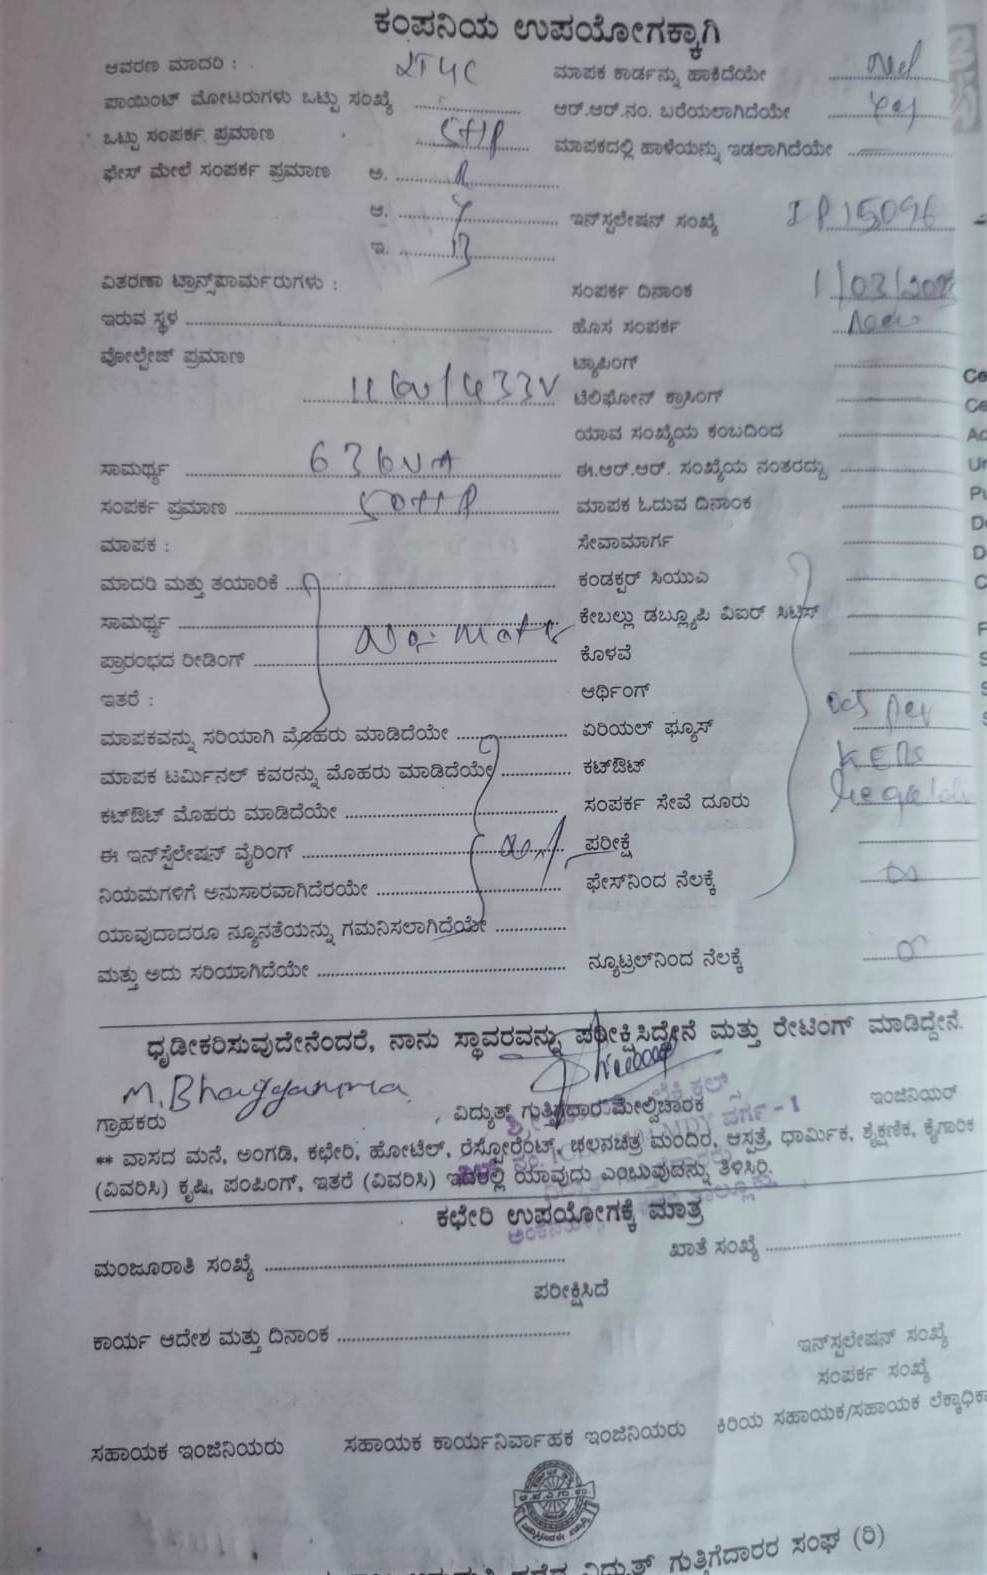 ಕಂಪನಿಯ ಉಪಯೋಗಕ್ಕಾಗಿ
ಆವರಣ ಮಾದರಿ : ಮಾಪಕ ಕಾರ್ಡನ್ನು ಹಾಕಿದೆಯೇ
ಪಾಯಿಂಟ್ ಮೋಟರುಗಳು ಒಟ್ಟು ಸಂಖ್ಯೆ ಆರ್.ಆರ್.ನಂ. ಬರೆಯಲಾಗಿದೆಯೇ Yes
ಒಟ್ಟು ಸಂಪರ್ಕ ಪ್ರಮಾಣ 5HP ಮಾಪಕದಲ್ಲಿ ಹಾಳೆಯನ್ನು ಇಡಲಾಗಿದೆಯೇ
ಫೇಸ್ ಮೇಲೆ ಸಂಪರ್ಕ ಪ್ರಮಾಣ ಅ. R
ಆ. Y ಇನ್‌ಸ್ಟಲೇಷನ್ ಸಂಖ್ಯೆ IP15096
ಇ. B
ವಿತರಣಾ ಟ್ರಾನ್ಸ್‌ಪಾರ್ಮರುಗಳು : ಸಂಪರ್ಕ ದಿನಾಂಕ
ಇರುವ ಸ್ಥಳ ಹೊಸ ಸಂಪರ್ಕ
ವೋಲ್ಟೇಜ್ ಪ್ರಮಾಣ ಟ್ಯಾಪಿಂಗ್
11kv/433V ಟೆಲಿಫೋನ್ ಕ್ರಾಸಿಂಗ್
ಯಾವ ಸಂಖ್ಯೆಯ ಕಂಬದಿಂದ
ಸಾಮರ್ಥ್ಯ 63kVA ಈ.ಆರ್.ಆರ್. ಸಂಖ್ಯೆಯ ನಂತರದ್ದು
ಸಂಪರ್ಕ ಪ್ರಮಾಣ 50HP ಮಾಪಕ ಓದುವ ದಿನಾಂಕ
ಮಾಪಕ : ಸೇವಾಮಾರ್ಗ
ಮಾದರಿ ಮತ್ತು ತಯಾರಿಕೆ ಕಂಡಕ್ಟರ್ ಸಿಯುಎ
ಸಾಮರ್ಥ್ಯ ಕೇಬಲ್ಲು ಡಬ್ಲ್ಯೂಪಿ ವಿಐಆರ್ ಸಿಟಿಸ್
ಪ್ರಾರಂಭದ ರೀಡಿಂಗ್ ಕೊಳವೆ
ಇತರೆ : ಆರ್ಥಿಂಗ್
ಮಾಪಕವನ್ನು ಸರಿಯಾಗಿ ಮೊಹರು ಮಾಡಿದೆಯೇ ಏರಿಯಲ್ ಫ್ಯೂಸ್ as per
ಮಾಪಕ ಟರ್ಮಿನಲ್ ಕವರನ್ನು ಮೊಹರು ಮಾಡಿದೆಯೇ ಕಟ್‌ಔಟ್
ಕಟ್‌ಔಟ್ ಮೊಹರು ಮಾಡಿದೆಯೇ ಸಂಪರ್ಕ ಸೇವೆ ದೂರು
ಈ ಇನ್‌ಸ್ಟೆಲೇಷನ್ ವೈರಿಂಗ್ ಪರೀಕ್ಷೆ
ನಿಯಮಗಳಿಗೆ ಅನುಸಾರವಾಗಿದೆರಯೇ ಫೇಸ್‌ನಿಂದ ನೆಲಕ್ಕೆ
ಯಾವುದಾದರೂ ನ್ಯೂನತೆಯನ್ನು ಗಮನಿಸಲಾಗಿದೆಯೇ
ಮತ್ತು ಅದು ಸರಿಯಾಗಿದೆಯೇ ನ್ಯೂಟ್ರಲ್‌ನಿಂದ ನೆಲಕ್ಕೆ
ಧೃಡೀಕರಿಸುವುದೇನೆಂದರೆ, ನಾನು ಸ್ಥಾವರವನ್ನು ಪರೀಕ್ಷಿಸಿದ್ದೇನೆ ಮತ್ತು ರೇಟಿಂಗ್ ಮಾಡಿದ್ದೇನೆ.
M. Bhagyamma
ಗ್ರಾಹಕರು ವಿದ್ಯುತ್ ಗುತ್ತಿಗೆದಾರ ಮೇಲ್ವಿಚಾರಕ ಇಂಜಿನಿಯರ್
** ವಾಸದ ಮನೆ, ಅಂಗಡಿ, ಕಛೇರಿ, ಹೋಟೆಲ್, ರೆಸ್ಟೋರೆಂಟ್, ಚಲನಚಿತ್ರ ಮಂದಿರ, ಆಸ್ಪತ್ರೆ, ಧಾರ್ಮಿಕ, ಶೈಕ್ಷಣಿಕ, ಕೈಗಾರಿಕ
(ವಿವರಿಸಿ) ಕೃಷಿ, ಪಂಪಿಂಗ್, ಇತರೆ (ವಿವರಿಸಿ) ಇದರಲ್ಲಿ ಯಾವುದು ಎಂಬುವುದನ್ನು ತಿಳಿಸಿರಿ.
ಕಛೇರಿ ಉಪಯೋಗಕ್ಕೆ ಮಾತ್ರ
ಮಂಜೂರಾತಿ ಸಂಖ್ಯೆ ಖಾತೆ ಸಂಖ್ಯೆ
ಪರೀಕ್ಷಿಸಿದೆ
ಕಾರ್ಯ ಆದೇಶ ಮತ್ತು ದಿನಾಂಕ
ಇನ್‌ಸ್ಟಲೇಷನ್ ಸಂಖ್ಯೆ
ಸಂಪರ್ಕ ಸಂಖ್ಯೆ
ಸಹಾಯಕ ಇಂಜಿನಿಯರು ಸಹಾಯಕ ಕಾರ್ಯನಿರ್ವಾಹಕ ಇಂಜಿನಿಯರು ಕಿರಿಯ ಸಹಾಯಕ/ಸಹಾಯಕ ಲೆಕ್ಕಾಧಿಕಾ
ವಿದ್ಯುತ್ ಗುತ್ತಿಗೆದಾರರ ಸಂಘ (ರಿ)